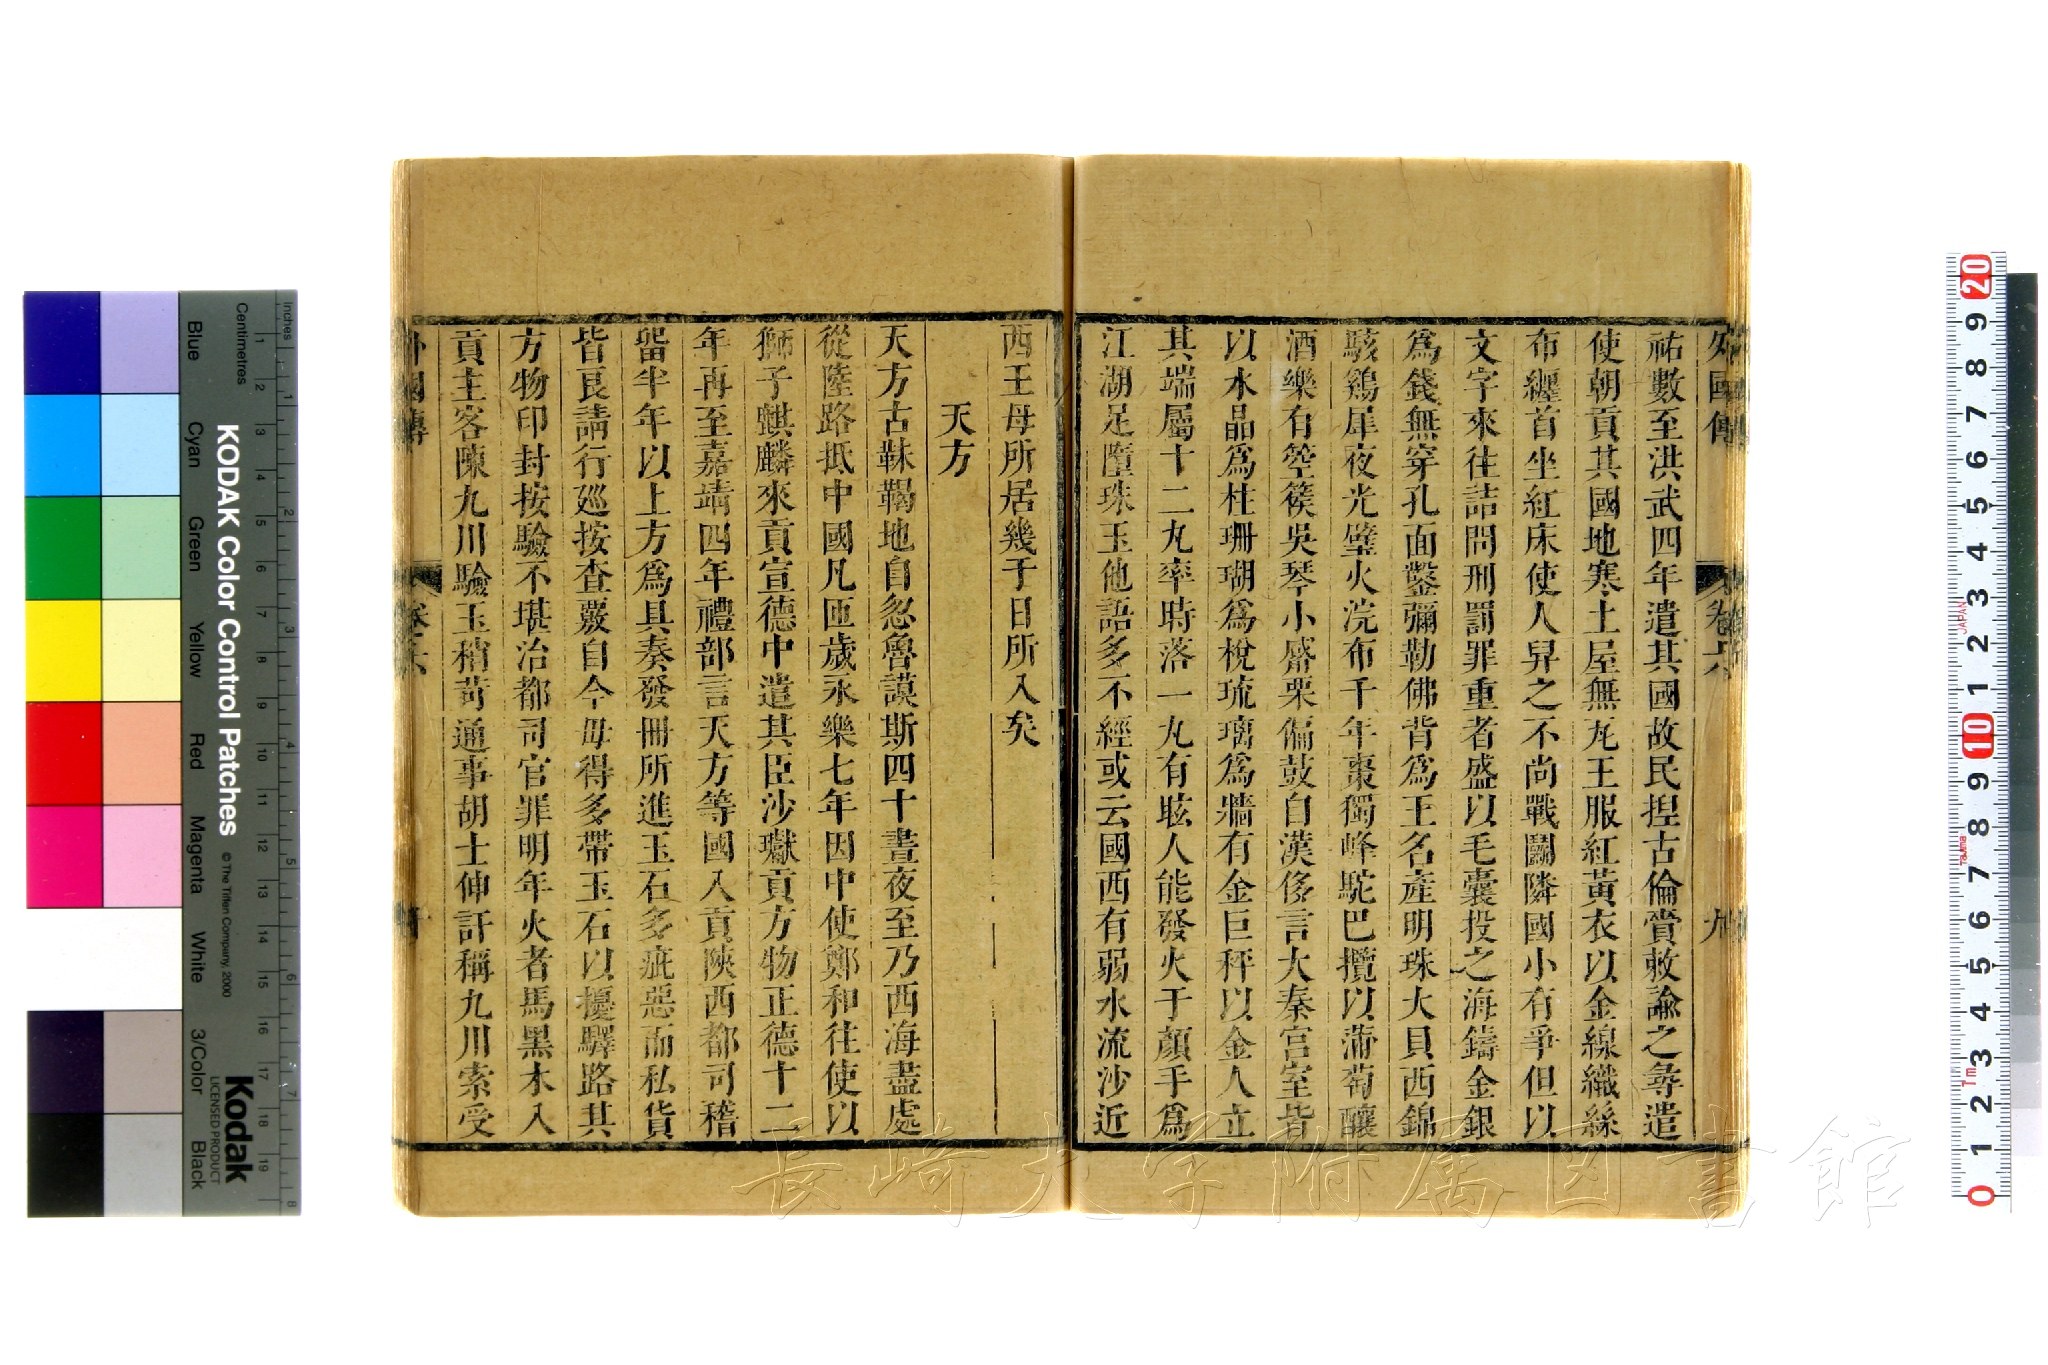 祐數至洪武四年遣其國故民揑古倫賫敕諭之尋遣
使朝貢其國地寒土屋無瓦王服紅黃衣以金線織絲
布纏首坐紅床使人舁之不尚戰鬭隣國小有爭但以
文字來往詰問刑罰罪重者盛以毛囊投之海鑄金銀
為錢無穿孔面鑿彌勒佛背為王名產明珠大貝西錦
駭鷄犀夜光璧火浣布千年棗獨峰駝巴攬以蒲萄釀
酒樂有箜篌吳琴小觱栗偏鼓自漢侈言大秦宮室皆
以水晶為柱珊瑚為梲琉璃為牆有金巨秤以金人立
其端屬十二丸率時落一丸有眩人能發火于顏手為
江湖足墮珠玉他語多不經或云國西有弱水流沙近
外國傳
卷六
九
西王母所居幾于日所入矣
天方
天方古靺鞨地自忽魯謨斯四十晝夜至乃西海盡處
從陸路抵中國凡匝歲永樂七年因中使鄭和往使以
獅子麒麟來貢宣德中遣其臣沙瓛貢方物正德十二
年再至嘉靖四年禮部言天方等國入貢陝西都司稽
畱半年以上方為具奏發冊所進玉石多疵惡而私貨
皆良請行廵按查覈自今毋得多帶玉石以擾驛路其
方物印封按驗不堪治都司官罪明年火者馬黑木入
貢主客陳九川驗玉稍苛通事胡士伸訐稱九川索受
外國傳
卷六
KODAK Color Control Patches
© The Tiffen Company, 2000
Kodak
LICENSED PRODUCT
Centimetres
Inches
Blue
Cyan
Green
Yellow
Red
Magenta
White
3/Color
Black
1 2 3 4 5 6 7 8 9 10 11 12 13 14 15 16 17 18 19
1 2 3 4 5 6 7 8
20 9 8 7 6 5 4 3 2 1 10 9 8 7 6 5 4 3 2 1 0
JAPAN
Tajima
Tm
長崎大学附属図書館